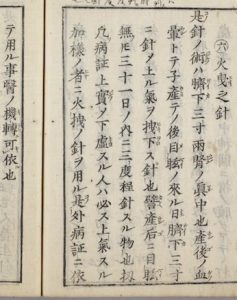 六 火曳之針
是針ノ術ハ臍下三寸兩腎ノ眞中也産後ノ血
暈トテ子産テノ後目眩ノ來ル日臍下三寸
ニ針ヲ上ル氣ヲ拽下ス針也譬産后ニ目眩
無𪜈三十一日ノ内ニ二三度程針スル物也扨
凡病証上實ノ下虚スル人ハ必ス上氣スル
加様ノ者ニ火拽ノ針ヲ用ル是外病証ニ依
テ用ル事醫ノ機轉可依也